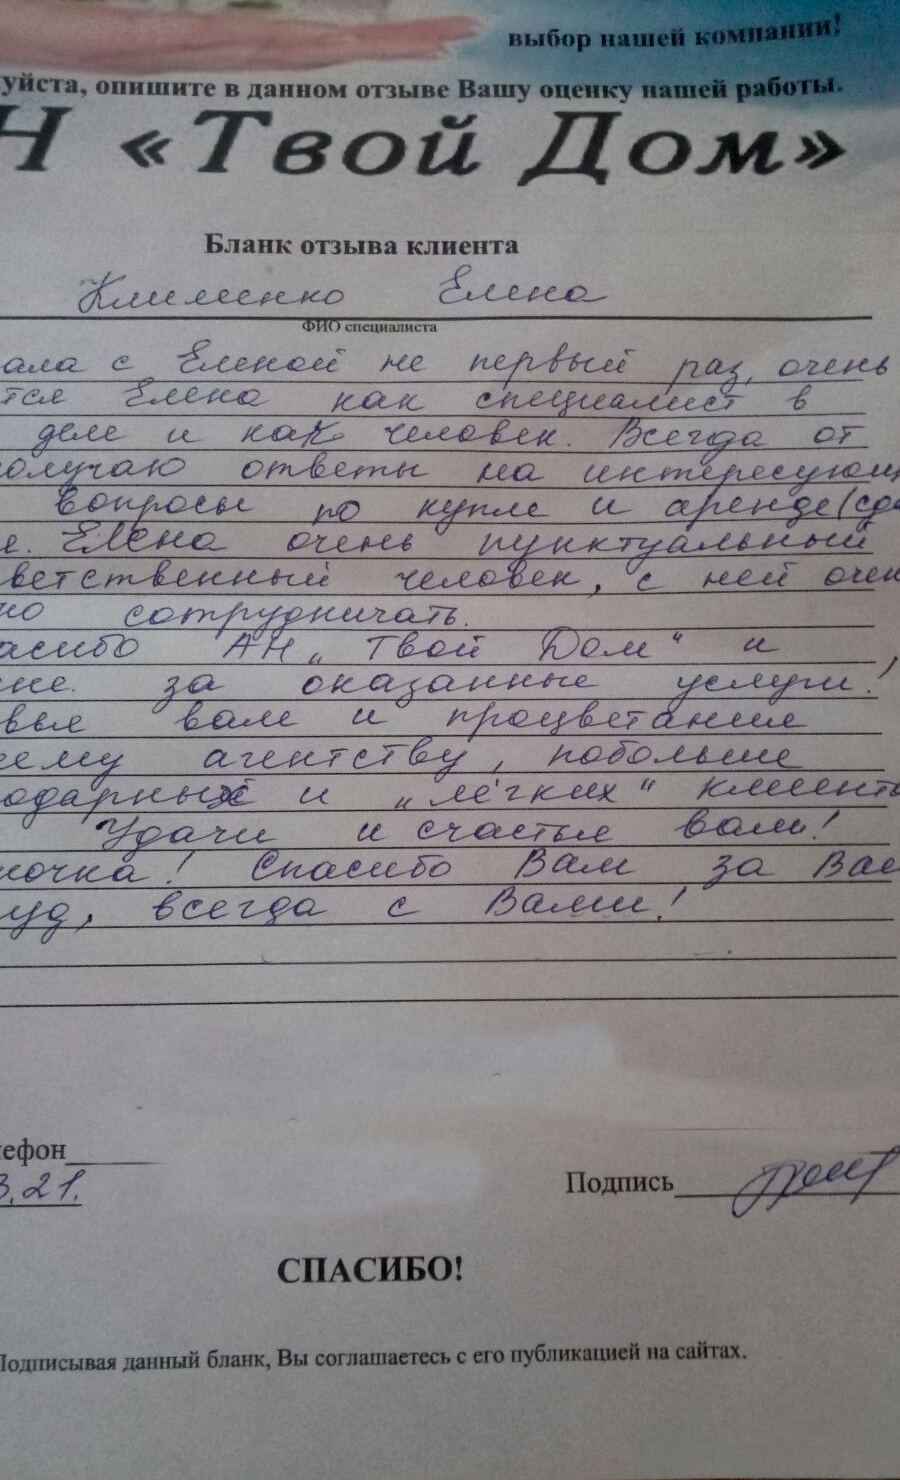 выбор нашей компании!
уйста, опишите в данном отзыве Вашу оценку нашей работы.
Н «Твой Дом»
Бланк отзыва клиента
Клименко Елена
ФИО специалиста
ала с Еленой не первый раз, очень
тся Елена как специалист в
деле и как человек. Всегда от
олучаю ответы на интересующ
вопросы по купле и аренде (сда
е. Елена очень пунктуальный
ветственный человек, с ней очен
но сотрудничать.
асибо АН „Твой Дом" и
не. за оказанные услуги!
вья вам и процветания
ему агентству, побольше
одарных и „лёгких" клиенто
Удачи и счастья вам!
ночка! Спасибо Вам за Ваш
уд, всегда с Вами!
лефон
3.21.
Подпись
СПАСИБО!
Подписывая данный бланк, Вы соглашаетесь с его публикацией на сайтах.